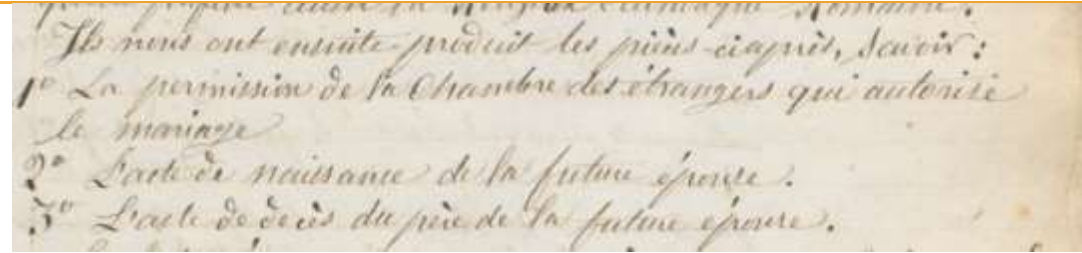 la Religion Catholique Romaine.
Ils nous ont ensuite produit les pièces ci-après, Savoir :
1º La permission de la Chambre des étrangers qui autorise
le mariage
2º L'acte de naissance de la future épouse.
3º L'acte de décès du père de la future épouse.